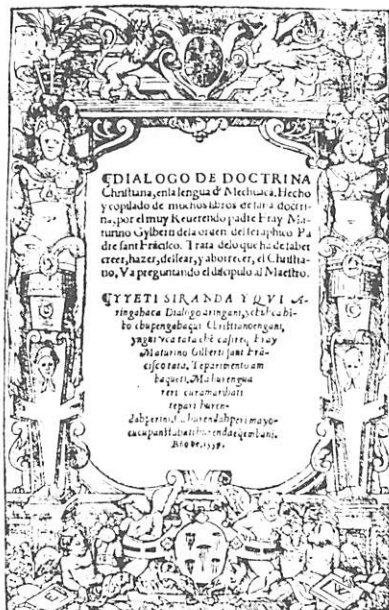 ¶DIALOGO DE DOCTRINA
Christiana, enla lengua d' Mechuacã. Hecho
y copilado de muchos libros de sana doctri-
na, por el muy Reuerendo padre Fray Ma-
turino Gylberti dela orden del seraphico Pa
dre sant Frãcisco. Trata delo que ha de saber
creer, hazer, dessear, y aborrecer, el Christia-
no, Va preguntando el discipulo al Maestro.
¶YYETI SIRANDA Y QVI A-
ringahaca Dialogo aringani,
Christianoengani,
Fray
Maturino Gilberti sant Frã-
cisco tata, Teparimento am
baqueti, Ma hurengua
reri curamarihati
tepari huren-
dahperini,
Año de. 1559.